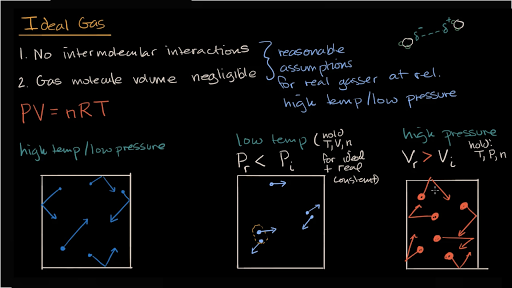 Ideal Gas
1. No intermolecular interactions
2. Gas molecule volume negligible
reasonable
assumptions
for real gasser at rel.
high temp/low pressure
δ- --- δ+
PV = nRT
high temp/low pressure
low temp (hold
T,V,n
for ideal
+ real
constant)
Pr < Pi
high pressure
hold:
T, P, n
Vr > Vi